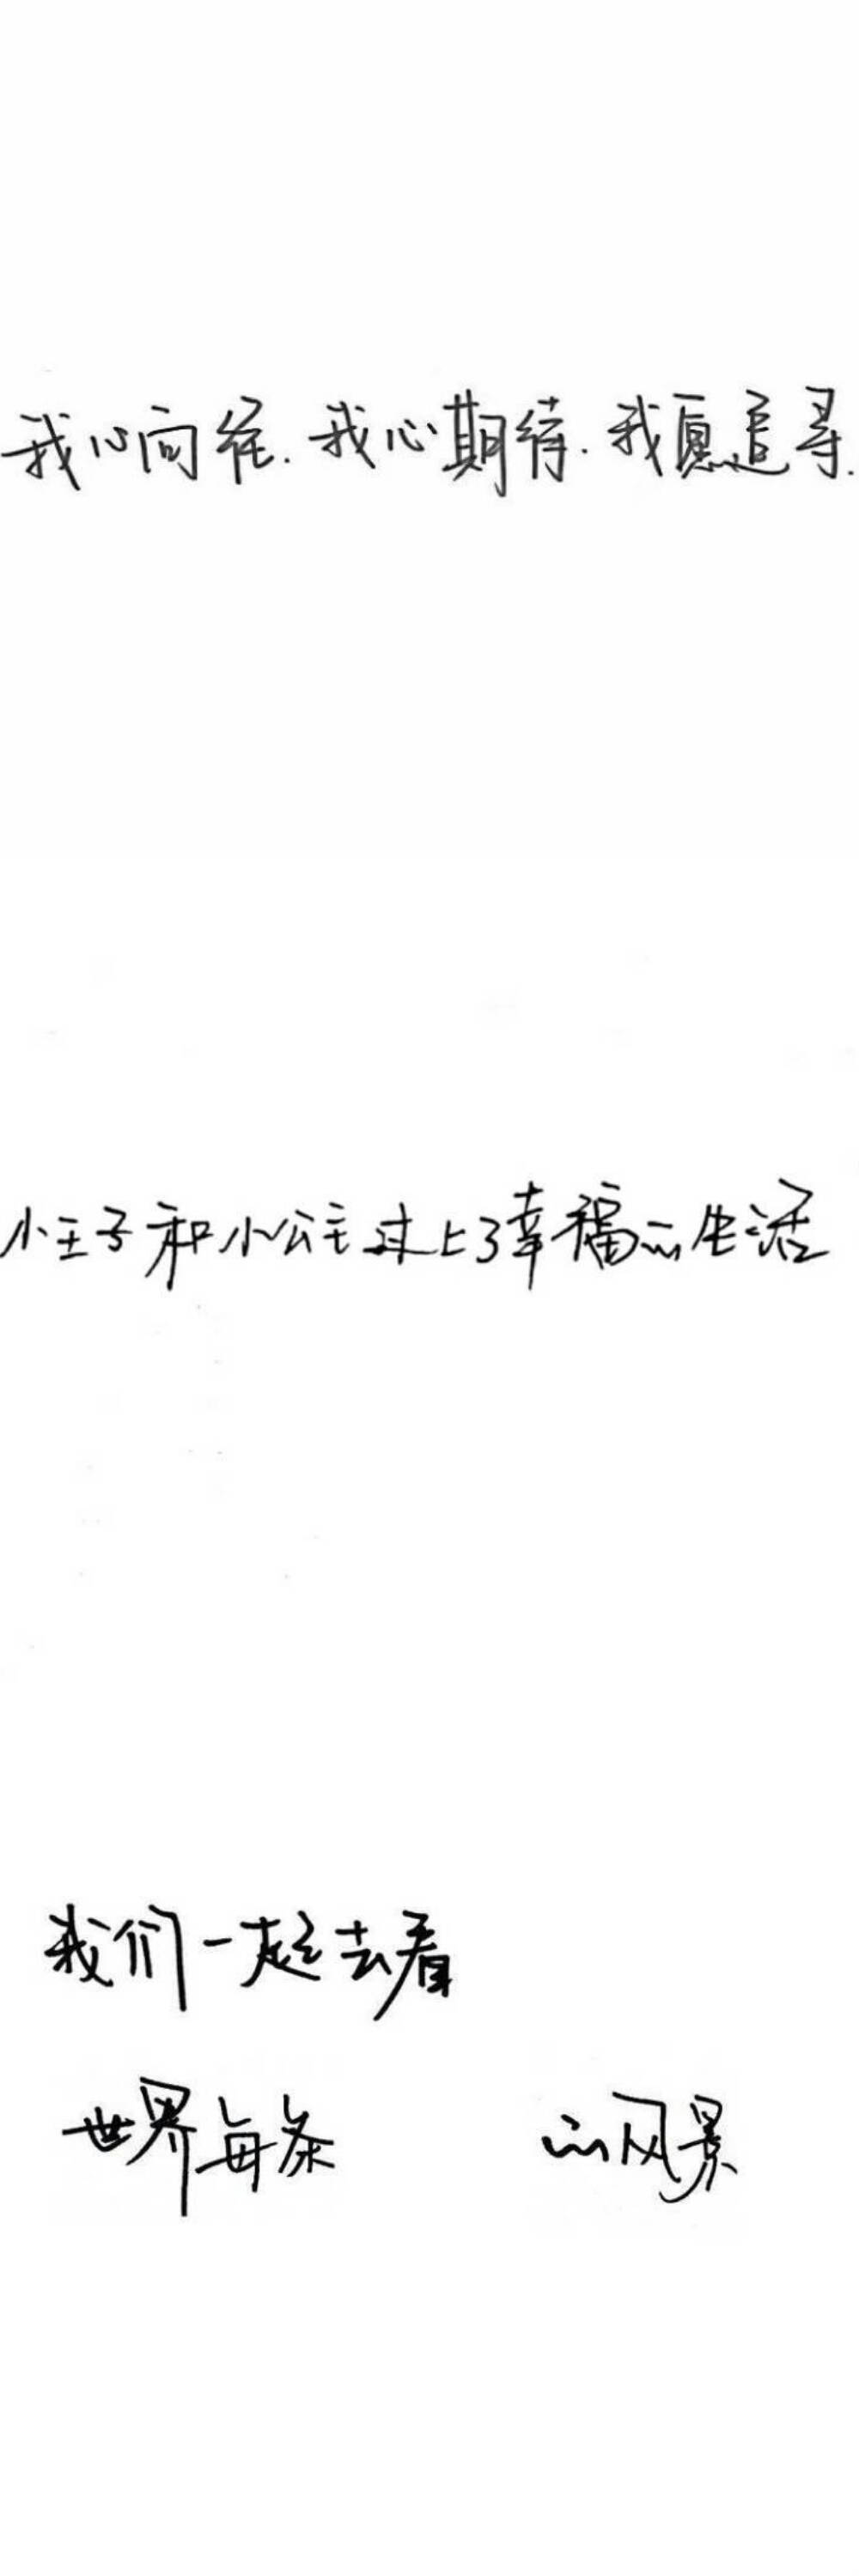 我心向往.我心期待.我愿追寻.
小王子和小公主过上了幸福的生活
我们一起去看
世界每条 的风景